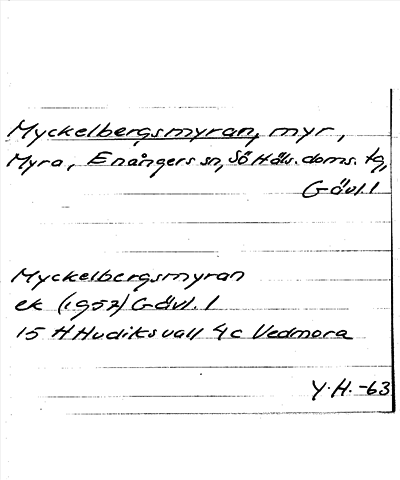 Myckelbergsmyran, myr,
Myra, Enångers sn, Sö Häls. doms. tg,
Gävl. l
Myckelbergsmyran
ek (1957) Gävl. l
15 H Hudiksvall 4c Vedmora
Y.H. -63